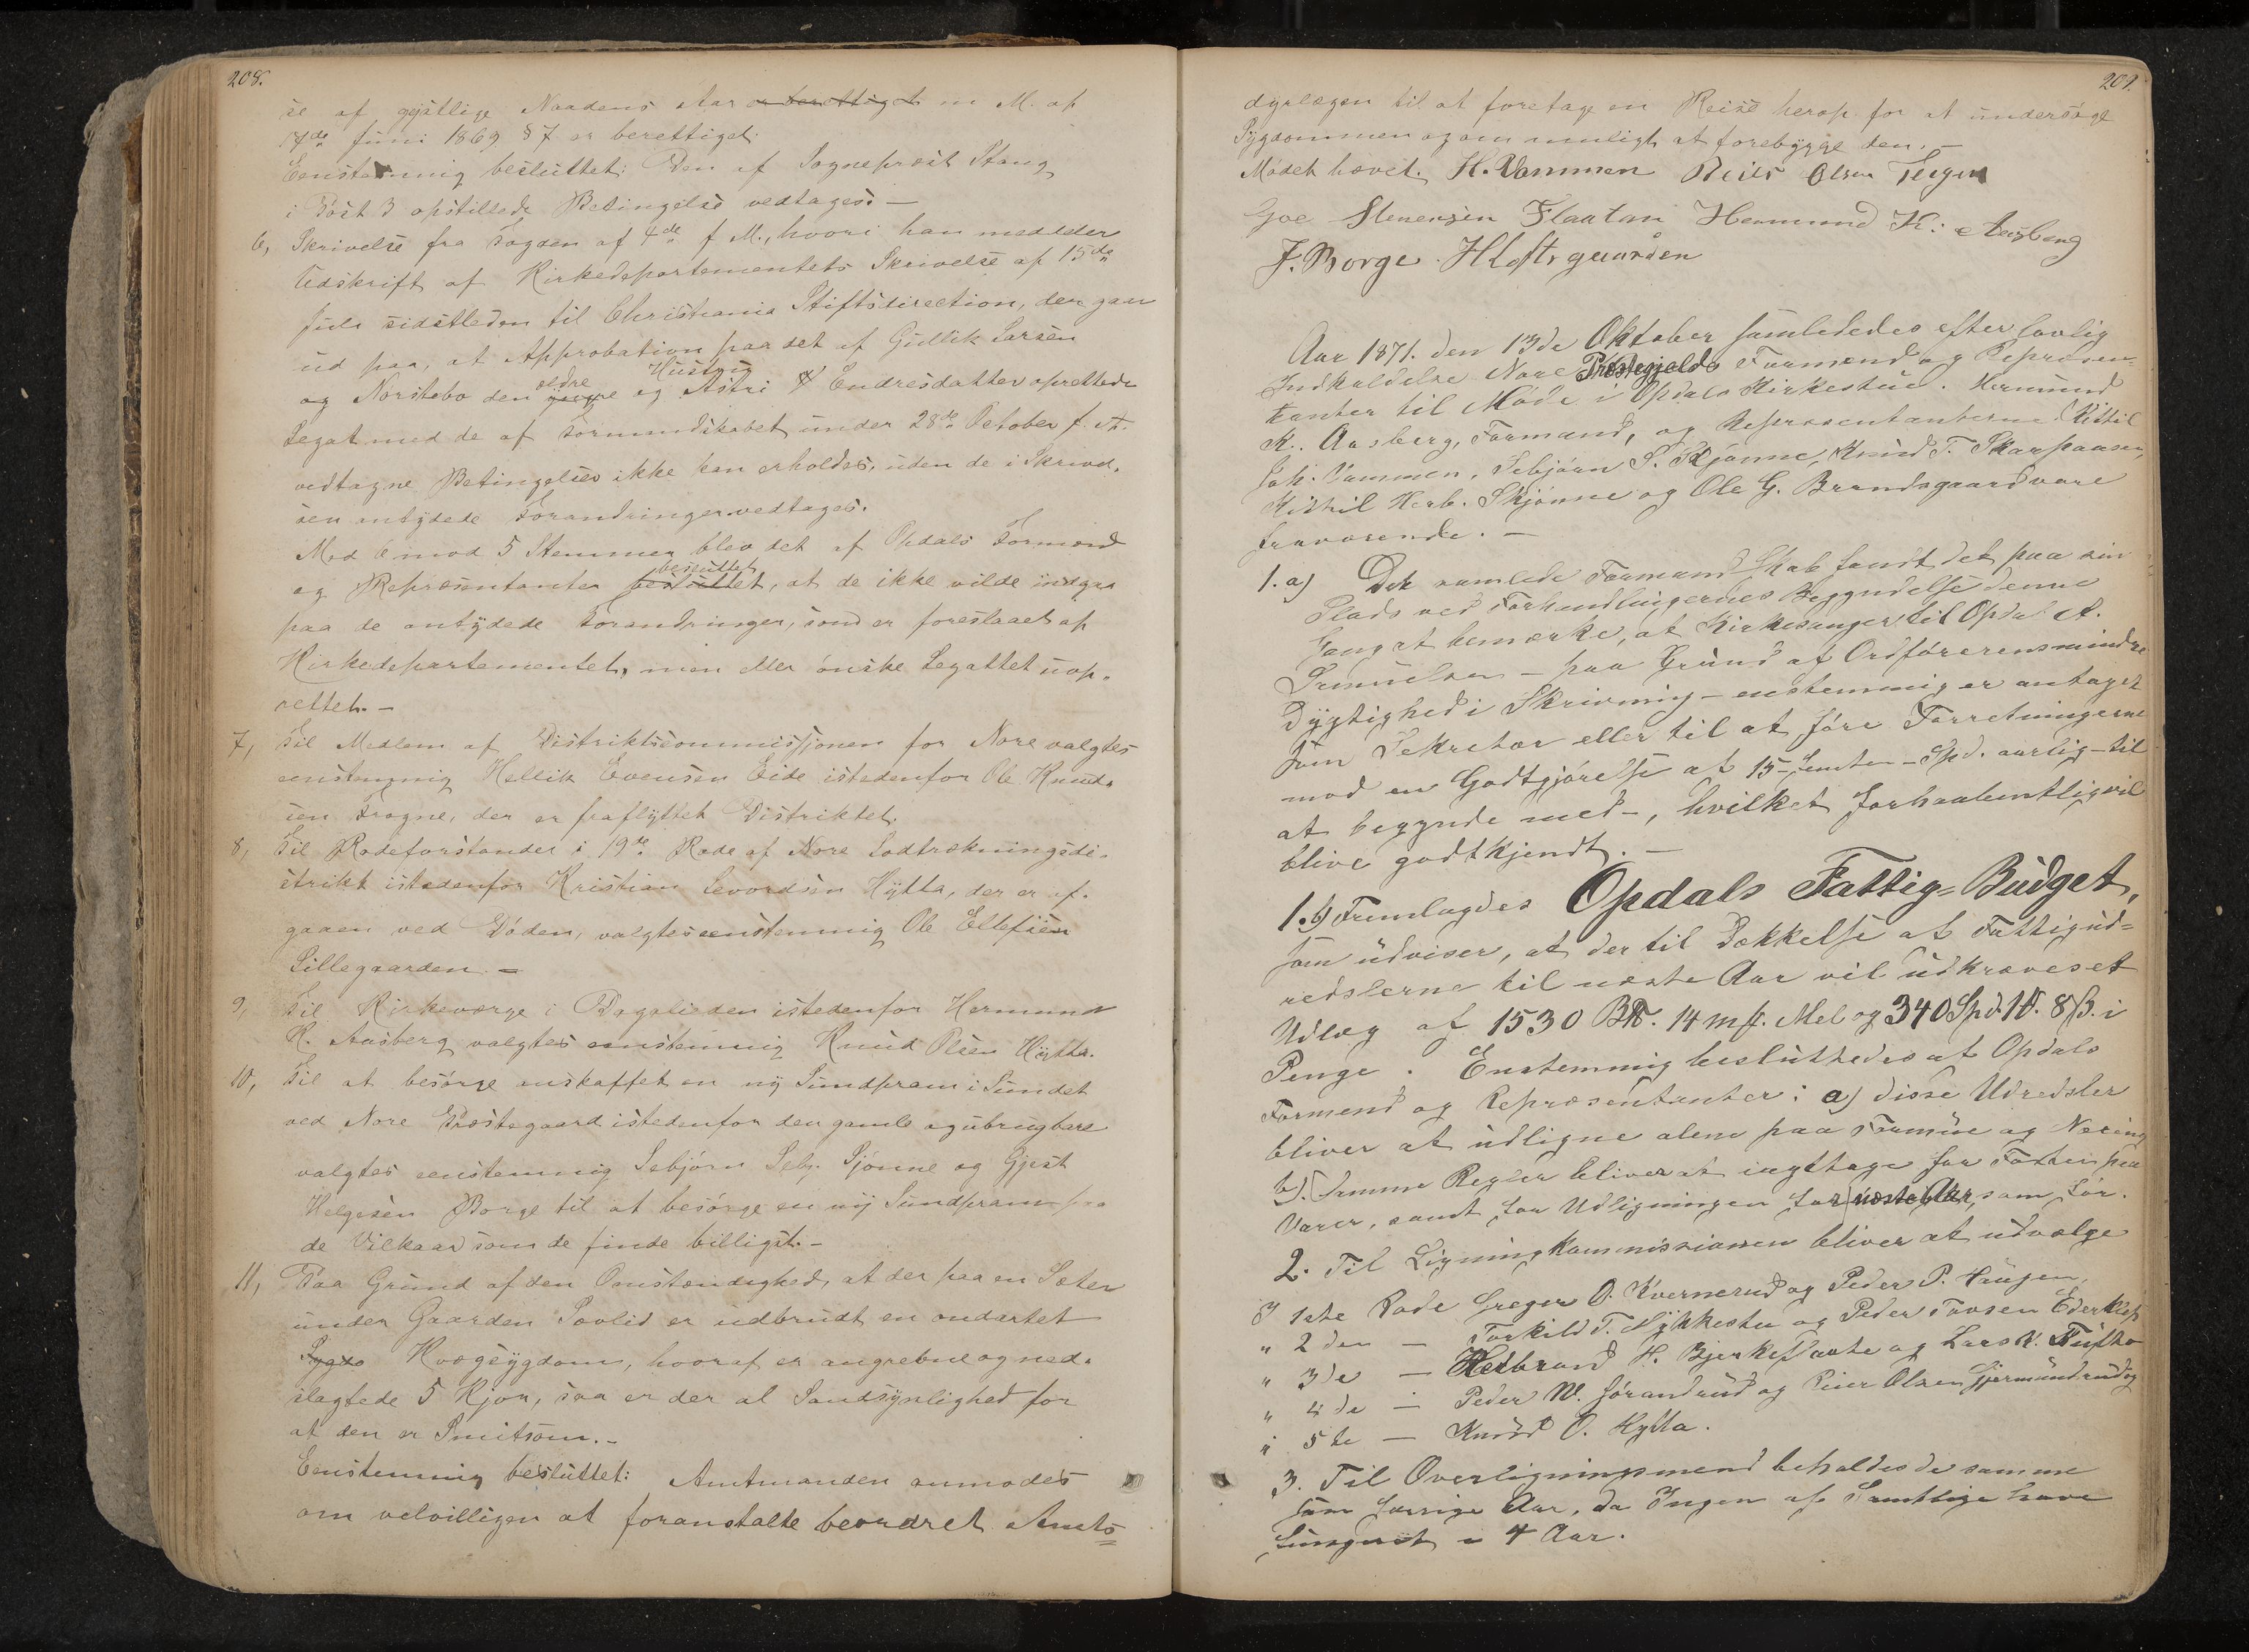 208.
se af gejstlige Naadens Aar er berettiget m M. af
14de Juni 1869 § 7 er berettiget.
Eenstemmig besluttet: Den af Sogneprest Stang
i Post 3 opstillede Betingelse vedtages. —
6, Skrivelse fra Fogden af 4de f M., hvori han meddeler
Udskrift af Kirkedepartementets Skrivelse af 15de
Juli sidstleden til Christiania Stiftsdirection, der gaar
ud paa, at Approbation paa det af Gullik Larsen
ældre Hustru
og Norstebø den yngre og Astri Endresdatter oprettede
Legat med de af Formandskabet under 28de October f. A.
vedtagne Betingelser ikke kan erholdes, uden de i Skrivel-
sen antydede Forandringer vedtages.
Med 6 mod 5 Stemmer blev det af Opdals Formænd
besluttet
og Repræsentanter besluttet, at de ikke vilde indgaa
paa de antydede Forandringer, som er foreslaaet af
Kirkedepartementet, men eller ønske Legattet uop-
rettet. —
7, Til Medlem af Distriktscommissjonen for Nore valgtes
eenstemmig Hellik Evensen Eide istedenfor Ole Knud-
sen Frogne, der er fraflyttet Distriktet.
8, Til Rodeforstander i 19de Rode af Nore Lodtrækningsdi-
strikt istedenfor Kristian Levordsen Hytta, der er af-
gaaen ved Døden, valgtes eenstemmig Ole Ellefsen
Lillegaarden. —
9, Til Kirkeværge i Dagalieden istedenfor Hermund
K. Aasberg valgtes eenstemmig Knud Olsen Hytta.
10, Til at besørge anskaffet en ny Sundpram i Sundet
ved Nore Præstegaard istedenfor den gamle og ubrugbare
valgtes eenstemmig Sebjørn Sebj. Sjønne og Gjest
Helgesen Borge til at besørge en ny Sundpram paa
de Vilkaar som de finde billigst. —
11, Paa Grund af den Omstændighed, at der paa en Sæter
under Gaarden Sovlid er udbrudt en ondartet
Sygdo Kvægsygdom, hvoraf er angrebne og ned-
slagtede 5 Kjør, saa er der al Sandsynlighed for
at den er Smitsom. —
Eenstemmig besluttet: Amtmanden anmodes
om velvilligen at foranstalte beordret Amts
209.
dyrlægen til at foretage en Reise herop for at undersøge
Sygdommen og om muligt at forebygge den. —
Mødet hævet. H. Vammen Neils Olsen Tegen
Goe Stenersen Flaatan Hermund K. Aasberg
J. Borge. H Loftsgaarden
Aar 1871. den 13de Oktober samlededes efter lovlig
Indkaldelse Nore Præstegjelds Formænd og Repræsen-
tanter til Møde i Opdals Kirkestue. Hermund
K. Aasberg, Formand, og Repræsentanterne Kittil
Joh. Vammen, Sebjørn S. Skjønne, Knud T. Skarpaasen,
Kittil Herb. Skjønne og Ole G. Brendsgaard vare
fraværende. —
1. a) Det samlede Formandskab fandt det paa sin
Plads ved Forhandlingernes Begyndelse denne
Gang at bemærke, at Kirkesanger til Opdal A.
Samuelsen — paa Grund af Ordførerens mindre
Dygtighed i Skrivning — enstemmig er antaget
som Sekretær eller til at føre Forretningerne
mod en Godtgjørelse af 15 — femten — Spd. aarlig — til
at begynde med —, hvilket forhaabentlig vil
blive godtkjendt. —
1. b) Fremlagdes Opdals Fattig-Budget,
som udviser, at der til Dækkelse af Fattigud-
redslerne til næste Aar vil udkræves et
Udlæg af 1530 B℔. 14 mk. Mel og 340 Spd. 1 O. 8 ß. i
Penge. Enstemmig besluttedes af Opdals
Formænd og Repræsentanter: a) disse Udredsler
bliver at udligne alene paa Formue og Næring
b). Samme Regler bliver at iagttage for Faxten paa
Varer, samt for Udligningen for næste Aar, som før.
2. Til Ligningskommissionen bliver at udvælge
I 1ste Rode Gregor O. Kvernerud og Peder P. Haugen,
" 2den — Torkild T. Nykkestu og Peder Tovsen Ederklep
" 3de — Herbrand H. Bjerkeflaate og Lars K. Tufto
" 4de — Peder W. Jørandrud og Peder Olsen Gjermundrud og
" 5te — Knud O. Hytta.
3. Til Overligningsmænd beholdes de samme
som forrige Aar, da Ingen af Samtlige have
fungeret i 4 Aar.